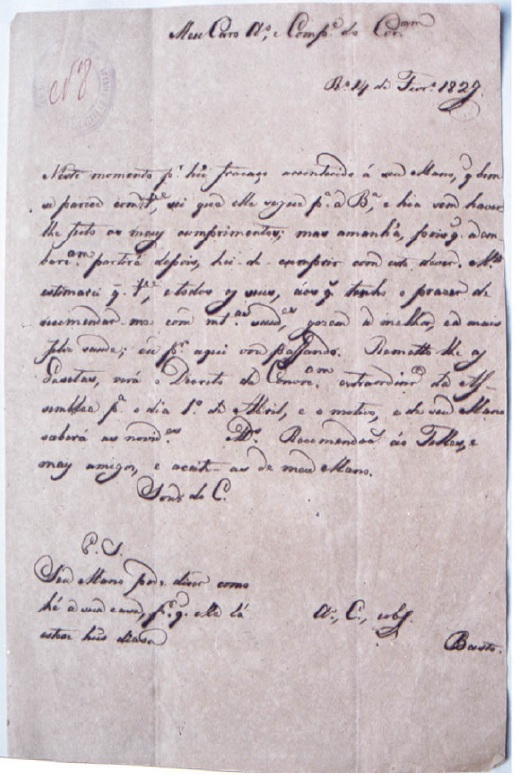 Nº 8
Meu Caro Aº, e Compº do Corᵃᵐ
Rº 14 de Fevrº 1829.
Neste momento pʳ hũ fracaço acontecido á seu Mano, q̃ bem
se parece com Vᶜᵉ, sei que elle segue pª a Bª, e hia sem haver
lhe feito os meus cumprimentos; mas amanhã, pois q̃ a em
barcᵃᵐ partirá depois, hei-de cumprir com este dever. Mᵗᵒ
estimarei q̃ Vᶜᵉ, e todos os seus, áos q̃ tenho o prazer de
recomendar-me com mᵗᵃˢ saudᵉˢ, gozem a melhor, e a mais
feliz saude; eu pʳ aqui vou passando. Remetto-lhe as
Gazetas, verá o Decreto da Convcᵃᵐ extraordinª da As
semblea pª o dia 1º de Abril, e o motivo, e de seu Mano
saberá as novidᵉˢ. Mᵗᵒ Recomendaᵐ áo Telles, e
mais amigos, e aceite-as de meu Mano.
Sou de C.
P. S.
Seu Mano pode dizer como
hé a sua casa, pʳ q̃ elle lá
esteve hũs dias
Aº, C., e obgº
Basto.